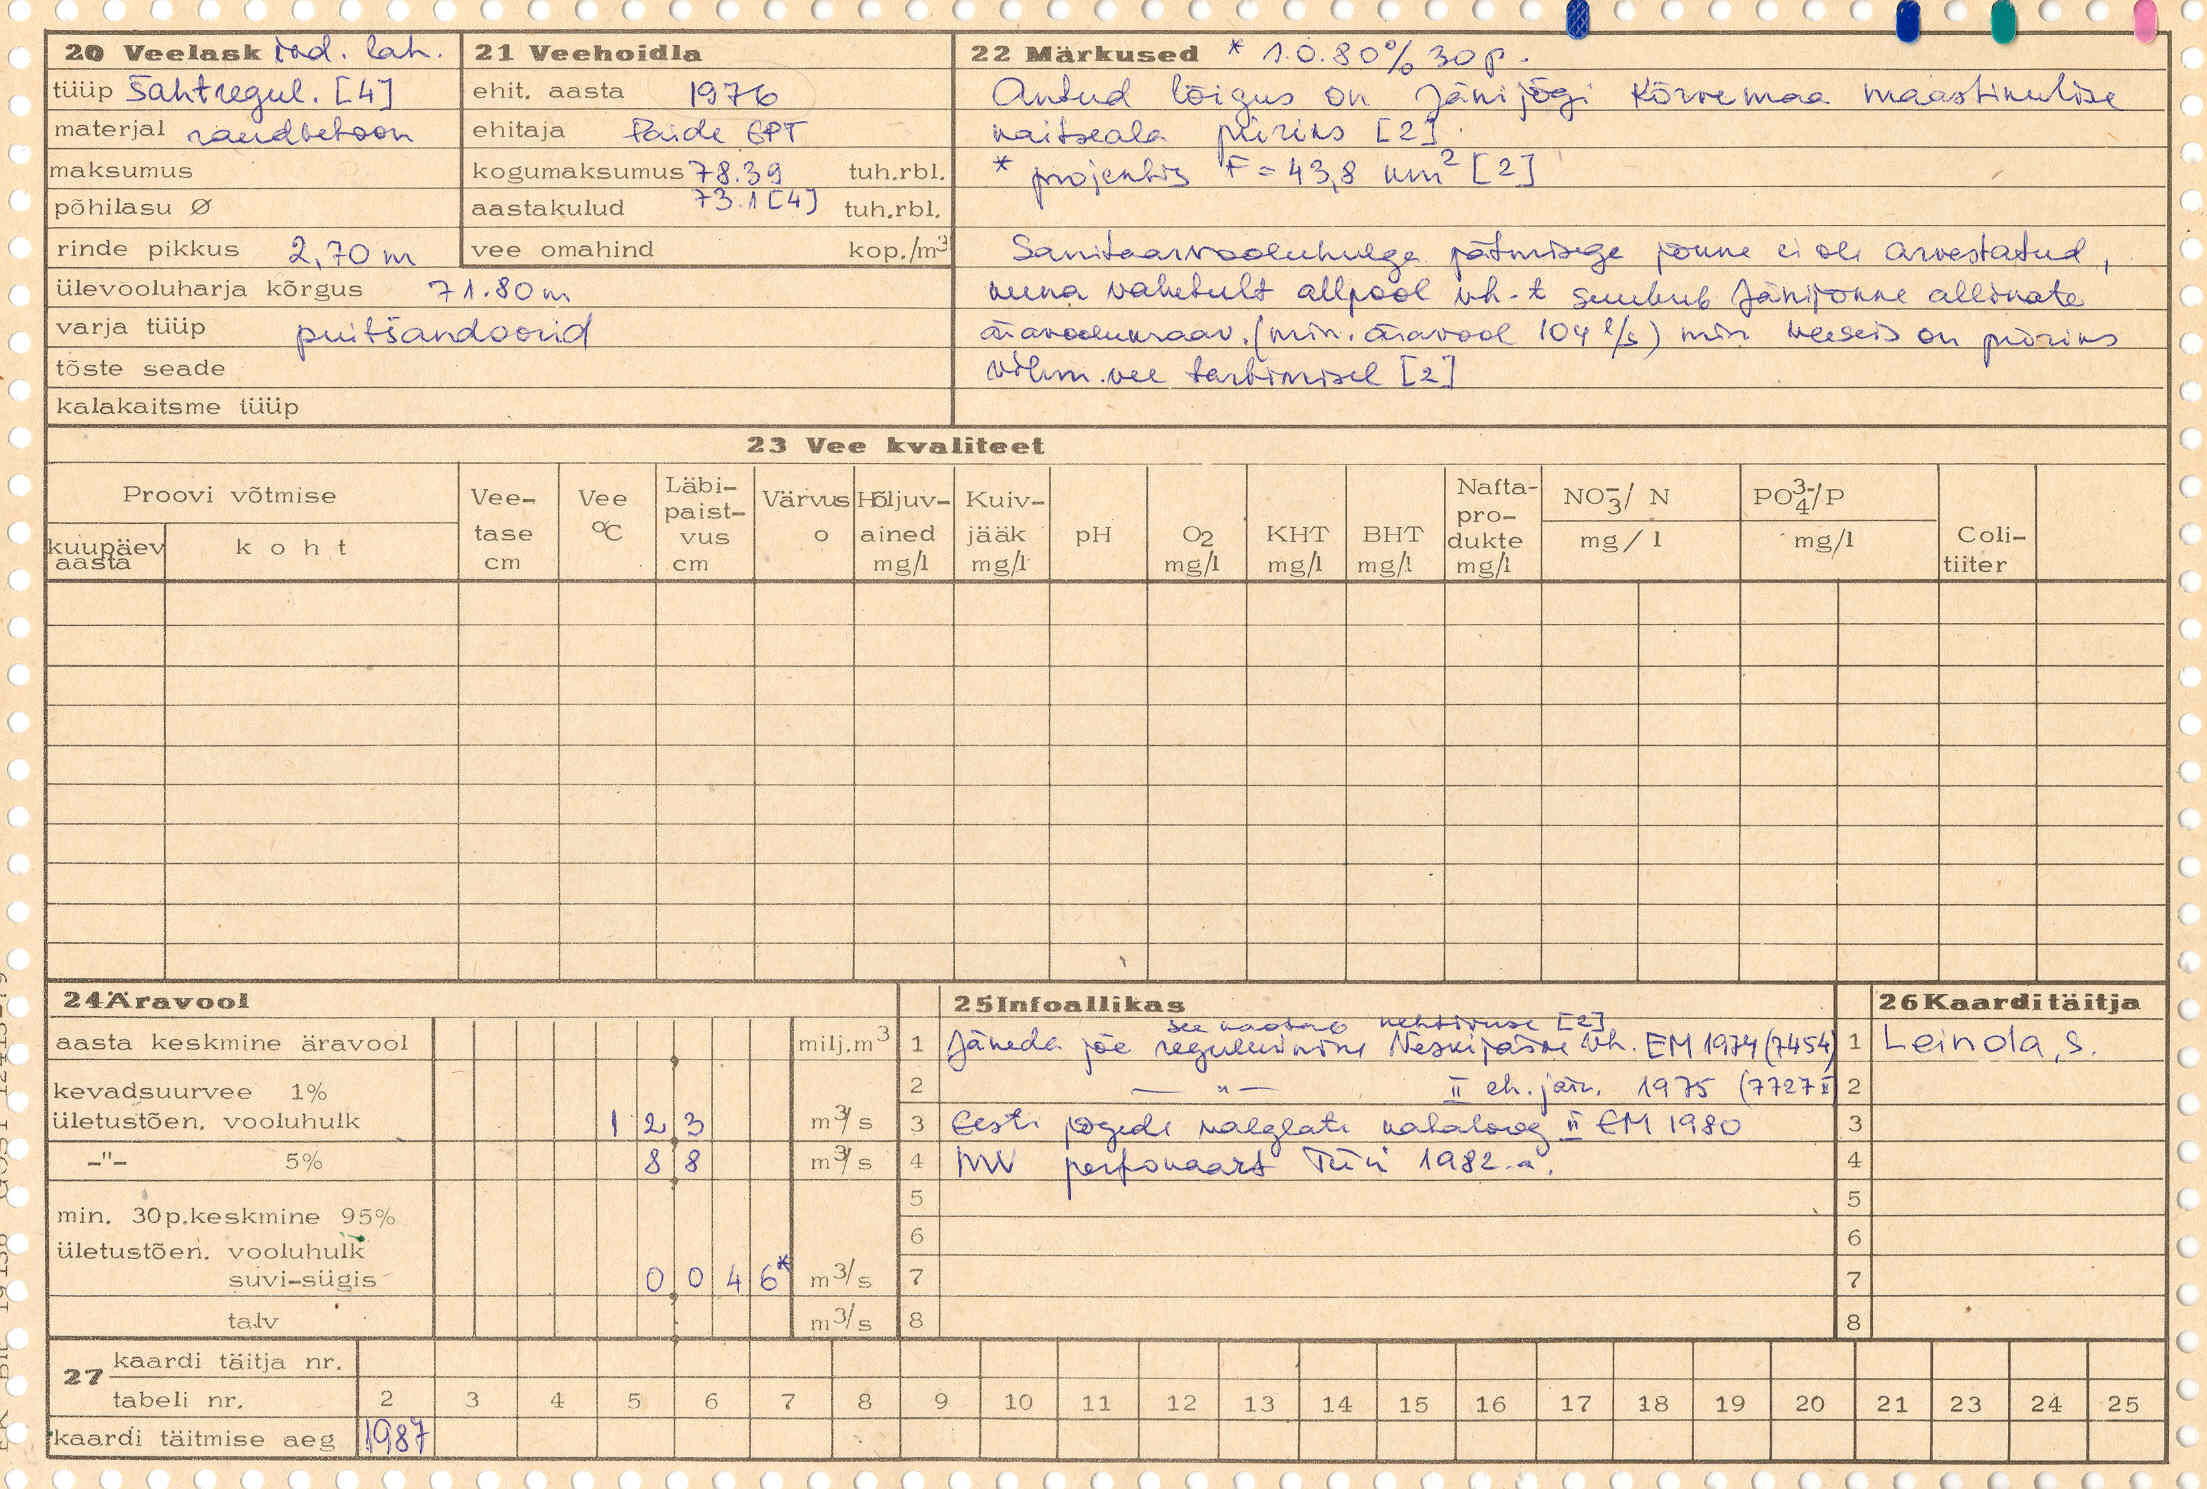 20 Veelask ind. lah.
tüüp šahtregul. [4]
materjal raudbetoon
maksumus
põhilasu Ø
rinde pikkus 2,70 m
ülevooluharja kõrgus 71.80 m
varja tüüp puitšandoorid
tõste seade
kalakaitsme tüüp
21 Veehoidla
ehit. aasta 1976
ehitaja Paide EPT
kogumaksumus 78.39 tuh.rbl.
aastakulud 73.1 [4] tuh.rbl.
vee omahind kop./m3
22 Märkused * 1.0.80% 30 p.
Antud lõigus on Jänijõgi Kõrvemaa maastikulise
kaitseala piiriks [2].
* projektis F = 43,8 km2 [2]
Sanitaarvooluhulga jätmisega jõkke ei ole arvestatud,
kuna vahetult allpool vh-t suubub Jänijõkke allikate
äravoolukraav. (min. äravool 104 l/s) min veeseis on piiriks
vihm. vee tarbimisel [2]
23 Vee kvaliteet
Proovi võtmise
kuupäev aasta
koht
Vee-tase cm
Vee °C
Läbi-paist-vus cm
Värvus o
Hõljuv-ained mg/l
Kuiv-jääk mg/l
pH
O2 mg/l
KHT mg/l
BHT mg/l
Nafta-pro-dukte mg/l
NO3-/ N mg/l
PO43-/P mg/l
Coli-tiiter
24 Äravool
aasta keskmine äravool milj.m3
kevadsuurvee 1%
ületustõen. vooluhulk 12.3 m3/s
-"- 5% 8.8 m3/s
min. 30p.keskmine 95%
ületustõen. vooluhulk
suvi-sügis 0.046* m3/s
talv m3/s
25 Infoallikas
see kaotab kehtivuse [2]
1 Jäneda jõe reguleerimine Neskijärve vh. EM 1974 (7454)
2 — " — II eh. järk. 1975 (7727 II
3 Eesti jõgede valglate kataloog II EM 1980
4 MV perfokaart Türi 1982.a.
5
6
7
8
26 Kaarditäitja
1 Leinola, S.
2
3
4
5
6
7
8
27 kaardi täitja nr.
tabeli nr. 2 3 4 5 6 7 8 9 10 11 12 13 14 15 16 17 18 19 20 21 23 24 25
kaardi täitmise aeg 1987